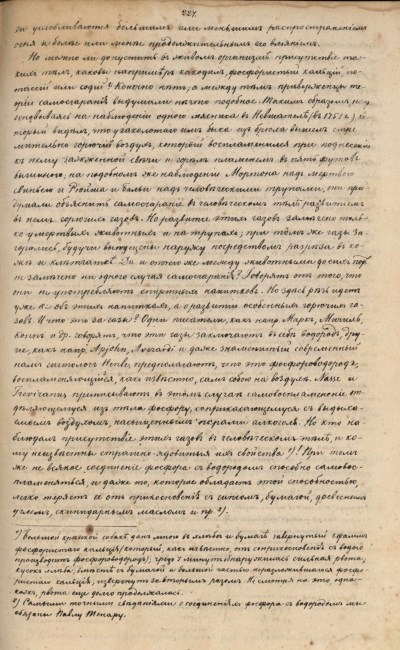 227.
ти условливаются большимъ или меньшимъ распространеніемъ
огня и болѣе или менѣе продолжительнымъ его вліяніемъ.
Но можно ли допустить въ живомъ организмѣ присутствіе та-
кихъ тѣлъ, каковы напримѣръ какодилъ, фосфористый кальцій, по-
тассій или содій? Конечно нѣтъ; а между тѣмъ приверженцы те-
оріи самосгаранія выдумали нѣчто подобное. Такимъ образомъ
на наблюденіи одного мясника въ Невшателѣ (въ 1751 г.), ко-
торый видѣлъ, что у заколотаго имъ быка изъ брюха вышелъ стре-
мительно горючій воздухъ, который воспламенился при поднесеніи
къ нему зажженной свѣчи и горѣлъ пламенемъ въ пять футовъ
вышиною; на подобномъ же наблюденіи Мортона надъ мертвою
свиньею и Рюйша и Бальи надъ человѣческими трупами, они при-
думали объяснить самосгараніе въ человѣческомъ тѣлѣ развитіемъ
въ немъ горючихъ газовъ. Но развитіе этихъ газовъ замѣчено толь-
ко у мертвыхъ животныхъ и на трупахъ; при томъ же газы за-
горѣлись, будучи выпущены наружу посредствомъ разрѣза въ ко-
жѣ и клѣтчаткѣ. Да и отчего же между животными до сихъ поръ
не замѣчено ни одного случая самосгаранія? Говорятъ отъ того, что
они не употребляютъ спиртныхъ напитковъ. Но здѣсь рѣчь идетъ
уже не объ этихъ напиткахъ, а о развитіи особенныхъ горючихъ га-
зовъ. И что это за газы? Одни писатели, какъ напр. Маркъ,
Коппъ и др. говорятъ, что эти газы заключаютъ въ себѣ водородъ; дру-
гіе, какъ напр. Apjohn, и даже знаменитый современный
намъ гистологъ Henle, предполагаютъ, что это фосфороводородъ,
воспламеняющійся, какъ извѣстно, самъ собою на воздухѣ. Nasse и
Treviranus приписываютъ въ этомъ случаѣ самовоспламененіе от-
дѣляющемуся изъ тѣла фосфору, соприкасающемуся съ выдыха-
емымъ воздухомъ, насыщеннымъ парами алкоголя. Но кто на-
блюдалъ присутствіе этихъ газовъ въ человѣческомъ тѣлѣ, и ко-
му неизвѣстны страшно-ядовитыя ихъ свойства ¹)? При томъ
же не всякое соединеніе фосфора съ водородомъ способно самовос-
пламеняться, и даже то, которое обладаетъ этою способностью,
легко теряетъ ее отъ прикосновенія съ гипсомъ, бумагой, древеснымъ
углемъ, скипидарнымъ масломъ и пр. ²).
¹) Большой крысовой собакѣ данъ мною въ хлѣбѣ и бумагѣ завернутый
фосфористаго кальція (который, какъ извѣстно, отъ соприкосновенія съ водою
производитъ фосфороводородъ); чрезъ 5 минутъ обнаружилась сильная рвота,
кусокъ хлѣба, вмѣстѣ съ бумагой и большею частью неразложившагося фосфо-
ристаго кальція, извергнутъ за вторымъ разомъ. Не смотря на это, одна-
кожъ, рвота еще долго продолжалась.
²) Самыми точными свѣдѣніями о соединеніяхъ фосфора съ водородомъ мы
обязаны Павлу Тенару.